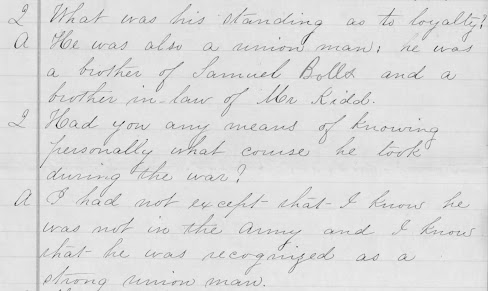 Q What was his standing as to loyalty?
A He was also a union man; he was
a brother of Samuel Bolls and a
brother in-law of Mr Kidd.
Q Had you any means of knowing
personally what course he took
during the war?
A I had not except that I know he
was not in the army and I know
that he was recognized as a
strong union man.